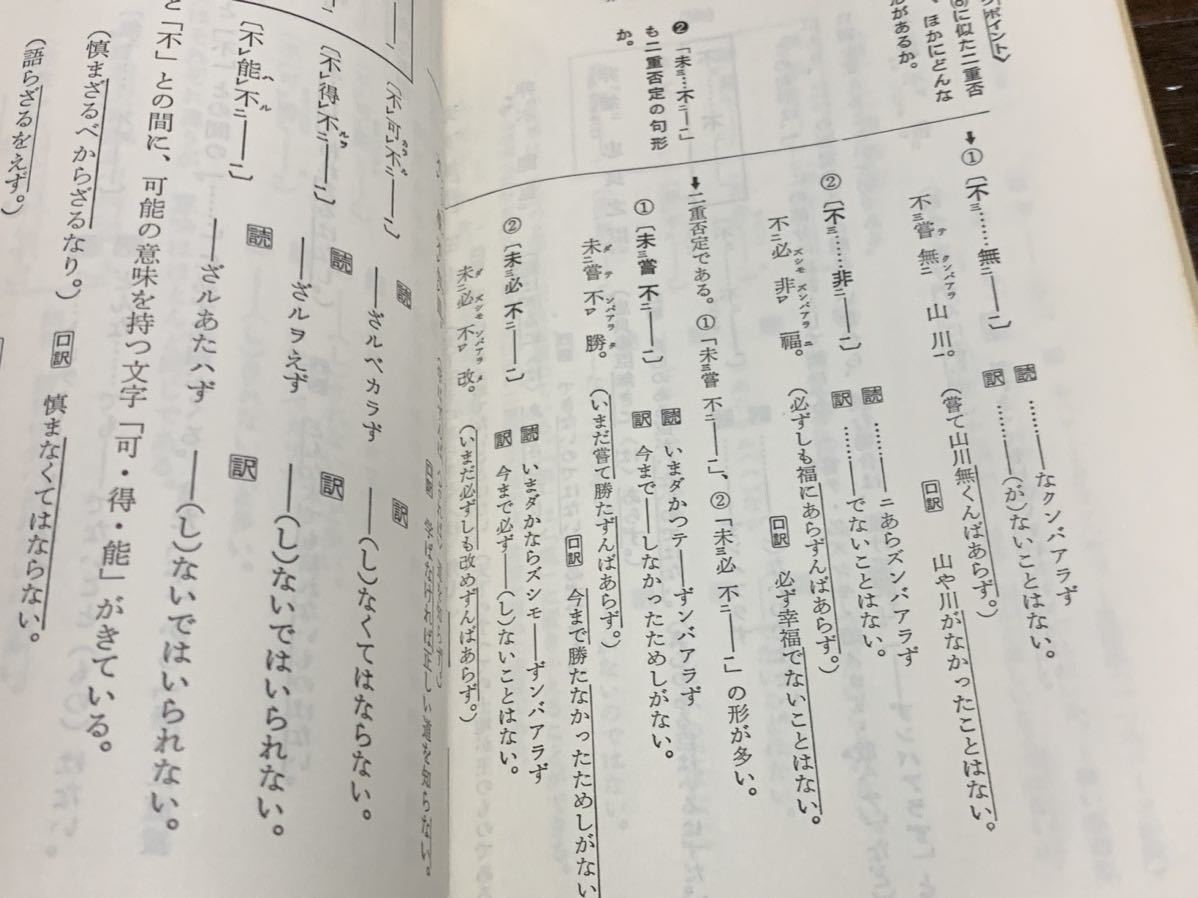 ポイント〉
に似た二重否
、ほかにどんな
形があるか。
➡①〔不ミ……無ニ――一〕
読 ……――なクンバアラず
訳 ……――(が)ないことはない。
不ミ嘗テ 無ニクンバアラ 山 川一。
(嘗て山川無くんばあらず。)
口訳 山や川がなかったことはない。
②〔不ミ……非ニ――一〕
読 ……――ニあらズンバアラず
訳 ……――でないことはない。
不ニ必ズシモ 非ズンバアラ 福ニ。
(必ずしも福にあらずんばあらず。)
口訳 必ず幸福でないことはない。
❷「未ミ…不ニ――一」
も二重否定の句形
か。
➡二重否定である。①「未ミ嘗 不ニ――一」、②「未ミ必 不ニ――一」の形が多い。
①〔未ミ嘗 不ニ――一〕
読 いまダかつテ――ずンバアラず
訳 今まで――しなかったためしがない。
未ダニ嘗テ 不ンバアラ 勝タ。
(いまだ嘗て勝たずんばあらず。)
口訳 今まで勝たなかったためしがない
②〔未ミ必 不ニ――一〕
読 いまダかならズシモ――ずンバアラず
訳 今まで必ず――(し)ないことはない。
未ダニ必ズシモ 不ンバアラ 改メ。
(いまだ必ずしも改めずんばあらず。)
口訳 学ばなければ正しい道を知らない。
〔不レ可カラ不ニ――一〕
読 ――ざルベカラず
訳 ――(し)なくてはならない。
〔不レ得レ不ニ――一〕
読 ――ざルヲえず
訳 ――(し)ないではいられない。
〔不レ能ハ不ルニ――一〕
読 ――ざルあたハず
訳 ――(し)ないではいられない。
と「不」との間に、可能の意味を持つ文字「可・得・能」がきている。
(慎まざるべからざるなり。)
口訳 慎まなくてはならない。
(語らざるをえず。)